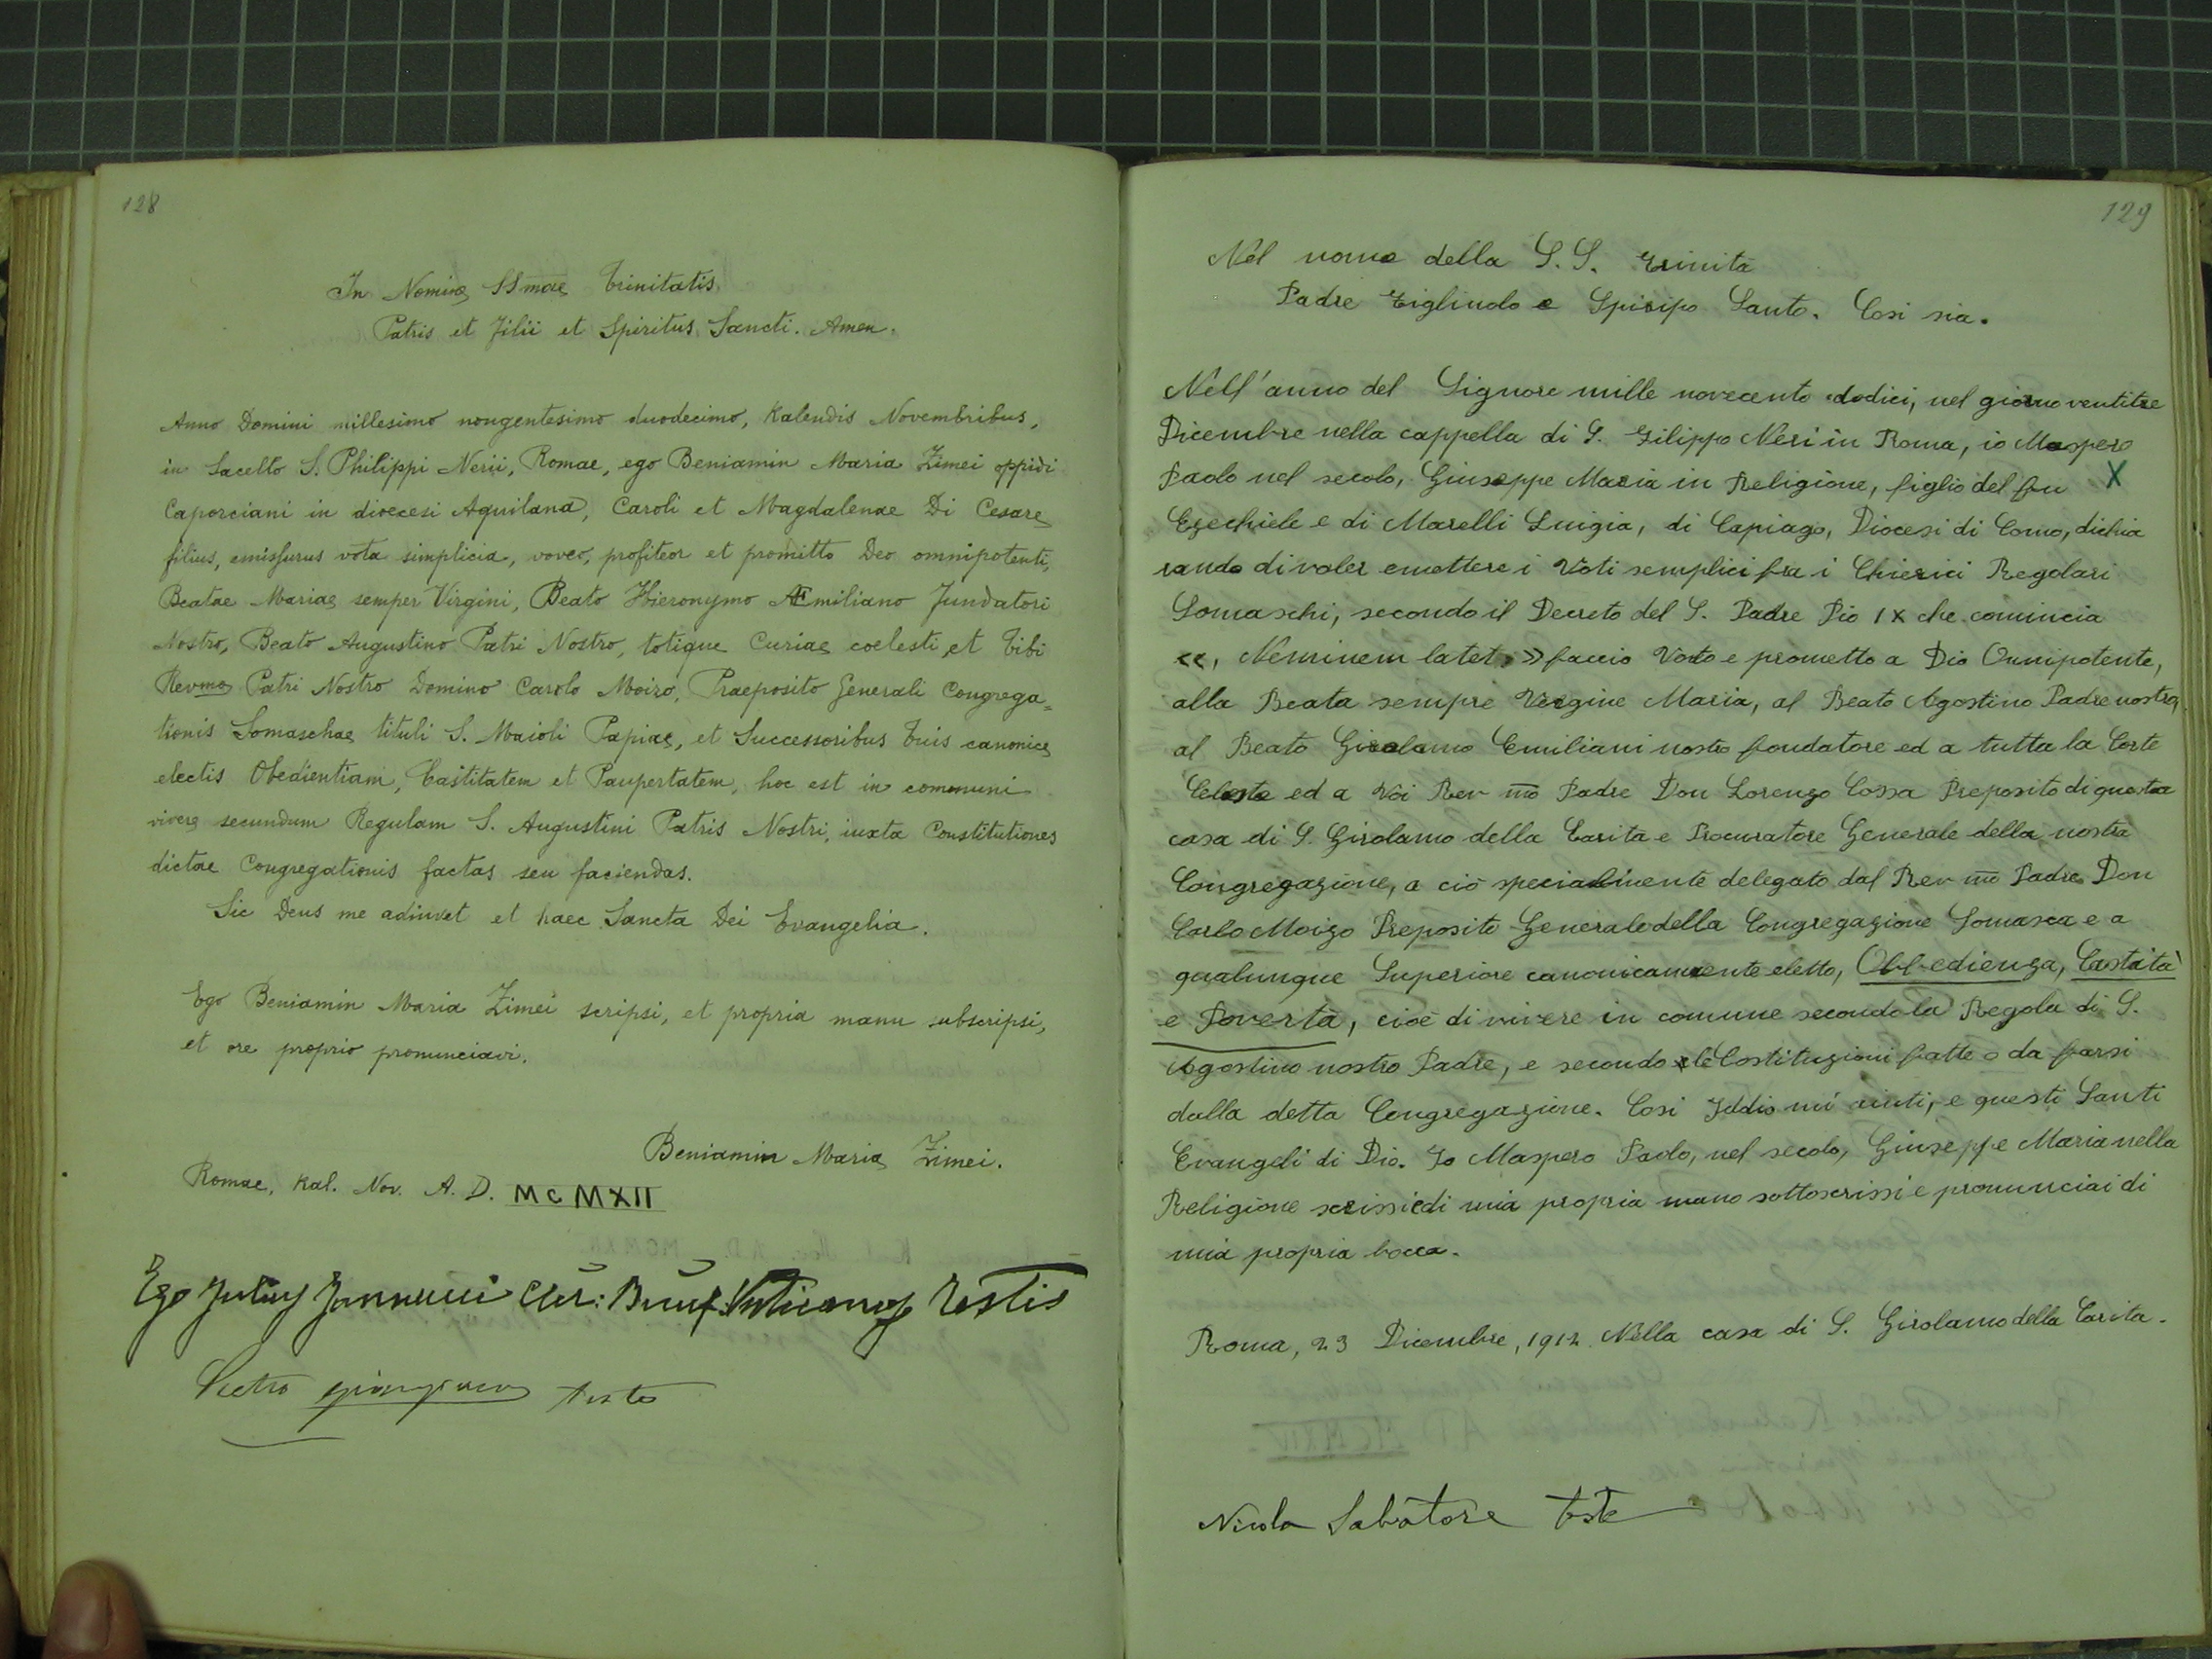 128
In Nomine SSmae Trinitatis
Patris et Filii et Spiritus Sancti. Amen.
Anno Domini millesimo nongentesimo duodecimo, Kalendis Novembribus,
in Sacello S. Philippi Nerii, Romae, ego Beniamin Maria Zimei oppidi
Caporciani in dioecesi Aquilana, Caroli et Magdalenae Di Cesare
filius, emissurus vota simplicia, voveo, profiteor et promitto Deo omnipotenti,
Beatae Mariae semper Virgini, Beato Hieronymo Æmiliano Fundatori
Nostro, Beato Augustino Patri Nostro, totique Curiae coelesti, et Tibi
Revmo Patri Nostro Domino Carolo Moizo, Praeposito Generali Congrega=
tionis Somaschae tituli S. Maioli Papiae, et Successoribus Tuis canonice
electis Obedientiam, Castitatem et Paupertatem, hoc est in communi
vivere secundum Regulam S. Augustini Patris Nostri, iuxta Constitutiones
dictae Congregationis factas seu faciendas.
Sic Deus me adiuvet et haec Sancta Dei Evangelia.
Ego Beniamin Maria Zimei scripsi, et propria manu subscripsi,
et ore proprio pronunciavi.
Beniamin Maria Zimei.
Romae, Kal. Nov. A. D. MCMXII
Ego Julius Jannucci Testis
teste
129
Nel nome della S.S. Trinita
Padre Figliuolo e Spirito Santo. Cosi sia.
Nell'anno del Signore mille novecento dodici, nel giorno ventitre
Dicembre nella cappella di S. Filippo Neri in Roma, io Maspero
Paolo nel secolo, Giuseppe Maria in Religione, figlio del fu X
Ezechiele e di Marelli Luigia, di Capiago, Diocesi di Como, dichia
rando di voler emettere i Voti semplici fra i Chierici Regolari
Somaschi, secondo il Decreto del S. Padre Pio IX che comincia
<<, Neminem latet, >> faccio Voto e prometto a Dio Onnipotente,
alla Beata sempre Vergine Maria, al Beato Agostino Padre nostro,
al Beato Girolamo Emiliani nostro fondatore ed a tutta la Corte
Celeste ed a Voi Rev mo Padre Don Lorenzo Cossa Preposito di questa
casa di S. Girolamo della Carita e Procuratore Generale della nostra
Congregazione, a ciò specialmente delegato dal Rev mo Padre Don
Carlo Moizo Preposito Generale della Congregazione Somasca e a
qualunque Superiore canonicamente eletto, Obbedienza, Castità
e Povertà, cioè di vivere in comune secondo la Regola di S.
Agostino nostro Padre, e secondo le Costituzioni fatte o da farsi
dalla detta Congregazione. Cosi Iddio mi aiuti, e questi Santi
Evangeli di Dio. Io Maspero Paolo, nel secolo, Giuseppe Maria nella
Religione scrissi e di mia propria mano sottoscrissi e pronunciai di
mia propria bocca.
Roma, 23 Dicembre, 1912. Nella casa di S. Girolamo della Carita.
Nicola Salvatore teste